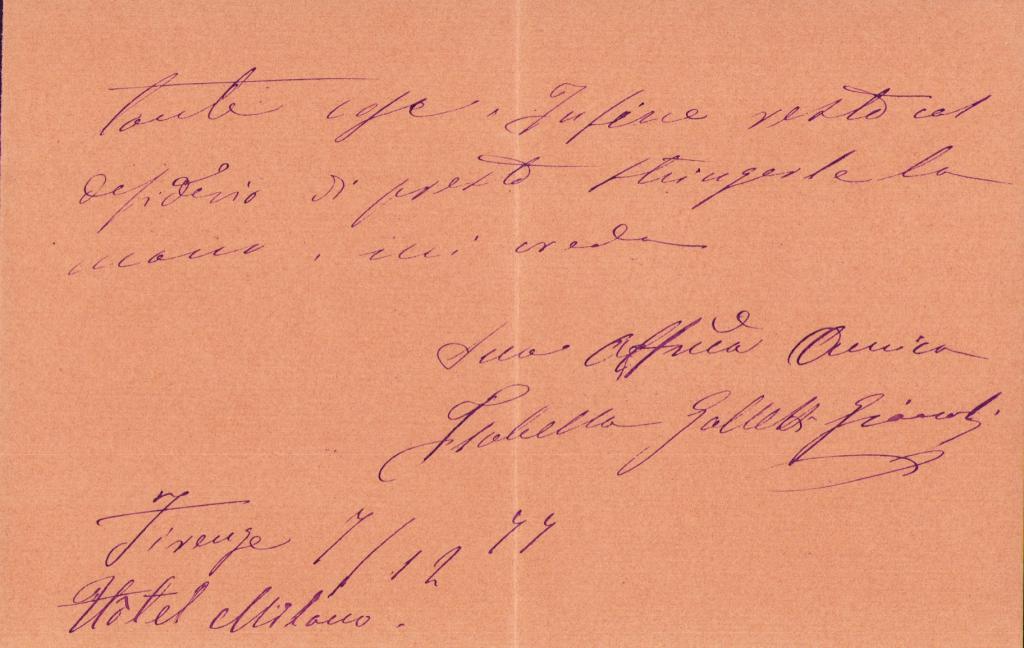 tante cose. Infine resto col
desiderio di presto stringerle la
mano, mi creda
Sua Affma Amica
Isabella Galletti Gianoli
Firenze 7/12 77
Hôtel Milano.